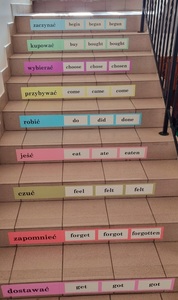 zaczynać begin began begun
kupować buy bought bought
wybierać choose chose chosen
przybywać come came come
robić do did done
jeść eat ate eaten
czuć feel felt felt
zapomnieć forget forgot forgotten
dostawać get got got